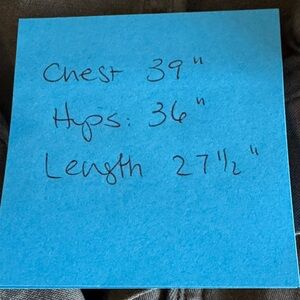 Chest 39"
Hyps: 36"
Length 27 1/2"